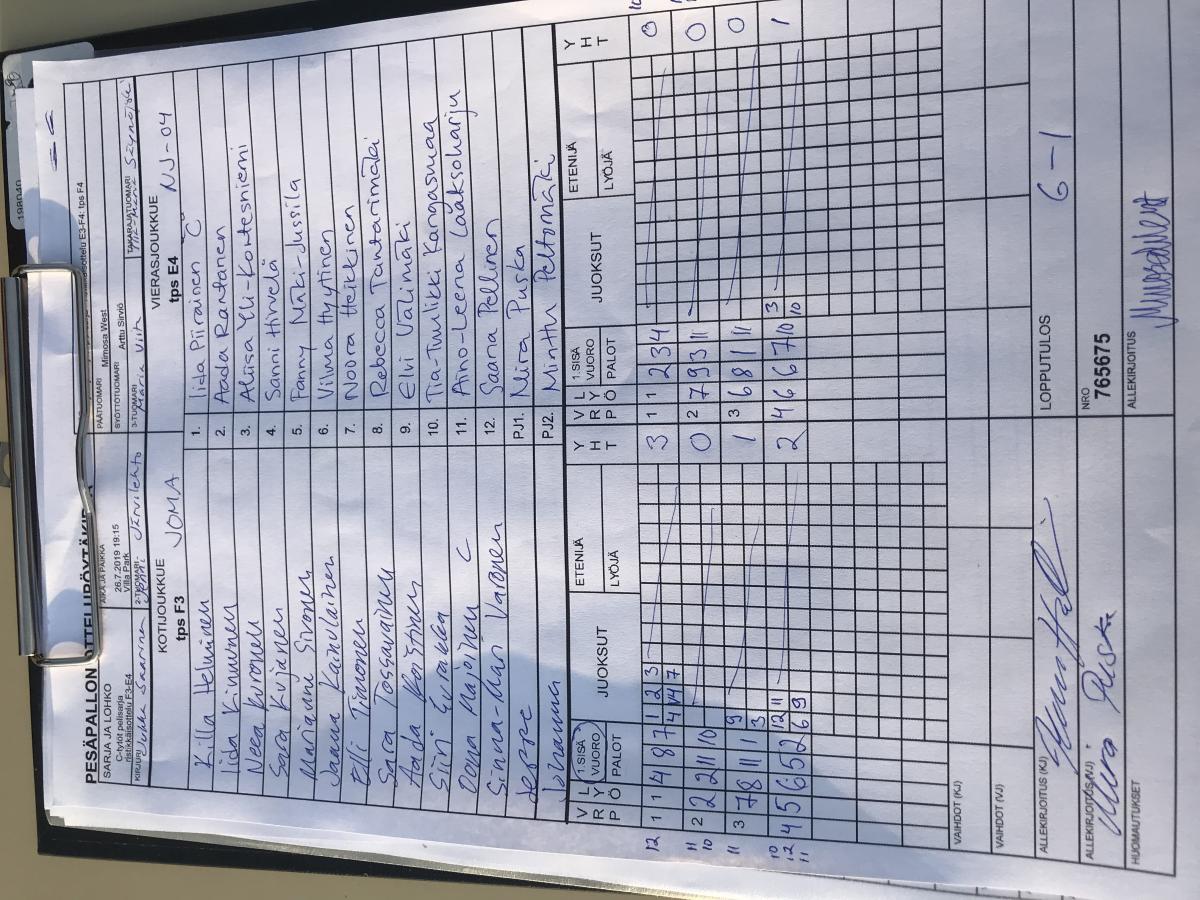 198040
PESÄPALLON OTTELUPÖYTÄKIRJA
SARJA JA LOHKO
C-tytöt pelisarja
ristikkäisottelu F3-E4
AIKA JA PAIKKA
26.7.2019 19:15
Villa Park
PÄÄTUOMARI Mimosa West
SYÖTTÖTUOMARI Arttu Sirviö
KIRJURI Juha Saarinen
2-TUOMARI Järvilehto
3-TUOMARI Maria
TAKARAJATUOMARI
KOTIJOUKKUE JOMA
tps F3
VIERASJOUKKUE NJ-04
tps E4
Killa Helminen 1. Iida Piirainen C
Iida Kinnunen 2. Aada Rantanen
Neea Kuronen 3. Aliisa Yli-Kortesniemi
Sara Kujanen 4. Sanni Hirvelä
Marianne Sivonen 5. Fanny Mäki-Jussila
Jaana Kainulainen 6. Vilma Hyytinen
Elli Timonen 7. Noora Heikkinen
Sara Tossavainen 8. Rebecca Tantarimäki
Aada 9. Elvi Välimäki
Siiri 10. Tia-Tuulikki Kangasmaa
C 11. Aino-Leena Laaksoharju
Sinna-Mari Varonen 12. Saana Pellinen
PJ1. Niira Puska
Johanna PJ2. Minttu Peltomäki
VRP LYÖ 1.SISÄ VUORO PALOT JUOKSUT ETENIJÄ LYÖJÄ YHT VRP LYÖ 1.SISÄ VUORO PALOT JUOKSUT ETENIJÄ LYÖJÄ YHT
12 1 1 4 8 7 1 2 3 3 1 1 2 3 4 0
11 10 2 2 2 11 10 0 2 7 9 3 11 0
11 3 7 8 11 1 9 3 1 3 6 8 1 11 0
10 12 11 4 5 6 5 2 12 11 6 9 2 2 4 6 6 7 10 3 10 1
VAIHDOT (KJ)
VAIHDOT (VJ)
ALLEKIRJOITUS (KJ)
LOPPUTULOS 6-1
ALLEKIRJOITUS (VJ) Niira Puska
NRO
765675
HUOMAUTUKSET
ALLEKIRJOITUS